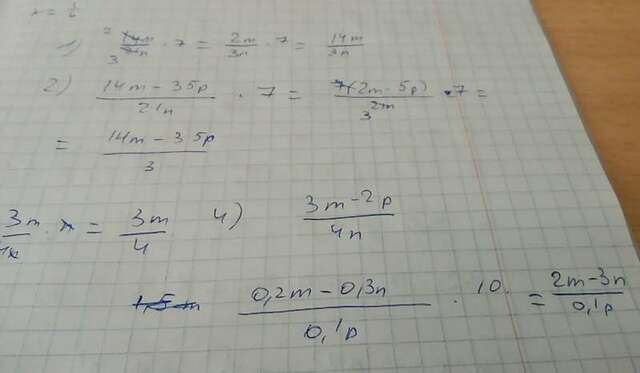 x = 1/6
1) 14m/21n · 7 = 2m/3n · 7 = 14m/3n
2) (14m - 35p)/21n · 7 = 7(2m - 5p)/3 · 7 =
= (14m - 35p)/3
3m/4x · x = 3m/4 4) (3m - 2p)/4n
1,5 m (0,2m - 0,3n)/0,1p · 10 = (2m - 3n)/0,1p